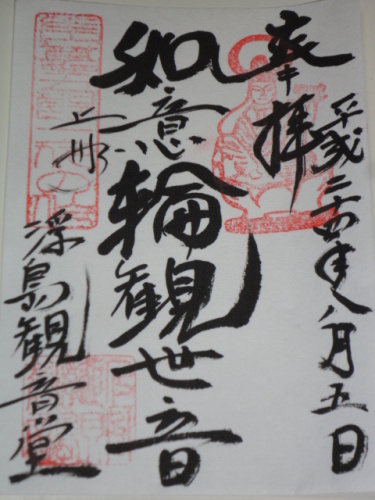 奉拝
平成二十四年八月五日
如意輪観世音
上州
浮島観音堂